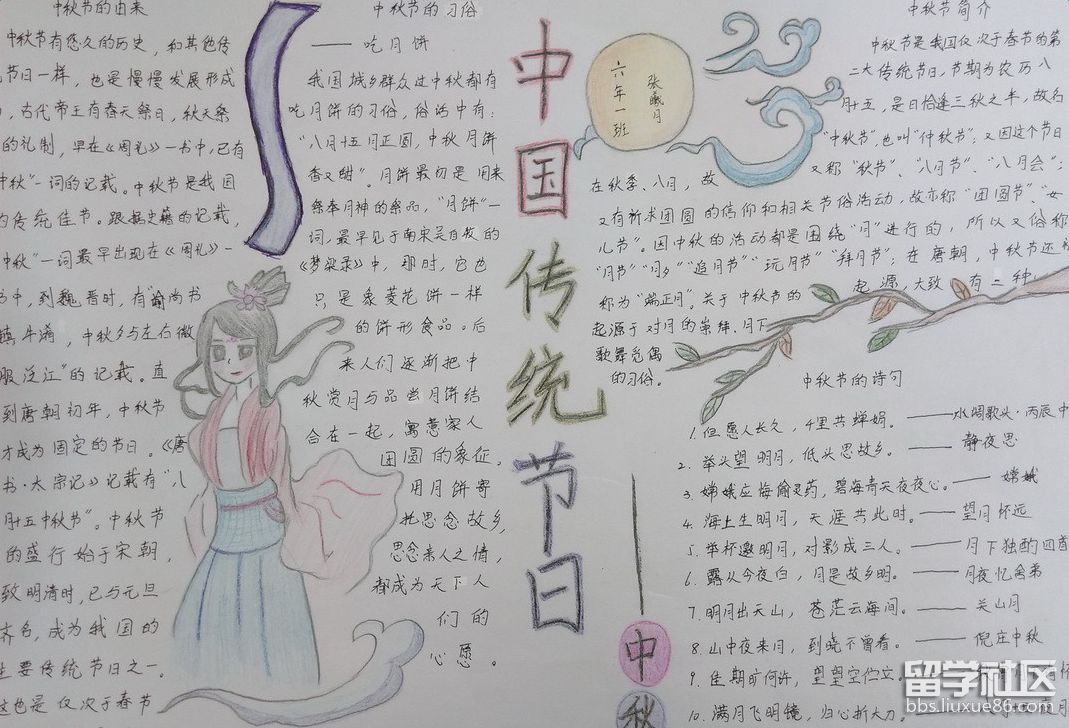 中秋节的由来
中秋节有悠久的历史，和其他传
节日一样，也是慢慢发展形成
，古代帝王有春天祭日，秋天祭
的礼制，早在《周礼》一书中，已有
中秋"一词的记载。中秋节是我国
的传统佳节。跟据史籍的记载，
中秋"一词最早出现在《周礼》一
书中，到魏晋时，有"谕尚书
镇牛渚，中秋夕与左右微
服泛江"的记载。直
到唐朝初年，中秋节
才成为固定的节日。《唐
书·太宗记》记载有"八
月十五中秋节"。中秋节
的盛行始于宋朝，
致明清时，已与元旦
齐名，成为我国的
主要传统节日之一。
这也是仅次于春节
中秋节的习俗
——吃月饼
我国城乡群众过中秋都有
吃月饼的习俗，俗话中有：
"八月十五月正圆，中秋月饼
香又甜"。月饼最初是用来
祭奉月神的祭品，"月饼"一
词，最早见于南宋吴自牧的
《梦粱录》中，那时，它也
只是象菱花饼一样
的饼形食品。后
来人们逐渐把中
秋赏月与品尝月饼结
合在一起，寓意家人
团圆的象征。
用月饼寄
托思念故乡，
思念亲人之情，
都成为天下人
们的
心愿。
中国传统节日
——中秋
六年一班
张曦月
中秋节简介
中秋节是我国仅次于春节的第
二大传统节日，节期为农历八
月十五，是日恰逢三秋之半，故名
"中秋节"，也叫"仲秋节"，又因这个节日
在秋季、八月，故又称"秋节"、"八月节"、"八月会"；
又有祈求团圆的信仰和相关节俗活动，故亦称"团圆节"、"女
儿节"。因中秋的活动都是围绕"月"进行的，所以又俗称
"月节""月夕""追月节""玩月节""拜月节"；在唐朝，中秋节还
称为"端正月"。关于中秋节的起源，大致有三种：
起源于对月的崇拜、月下
歌舞觅偶
的习俗。
中秋节的诗句
1.但愿人长久，千里共蝉娟。——水调歌头·丙辰中
2.举头望明月，低头思故乡。——静夜思
3.嫦娥应悔偷灵药，碧海青天夜夜心。——嫦娥
4.海上生明月，天涯共此时。——望月怀远
5.举杯邀明月，对影成三人。——月下独酌四首
6.露从今夜白，月是故乡明。——月夜忆舍弟
7.明月出天山，苍茫云海间。——关山月
8.山中夜来月，到晓不曾看。——倪庄中秋
9.佳期旷何许，望望空伫立。——
10.满月飞明镜，归心折大刀。
留学社区
bbs.liuxue86.com